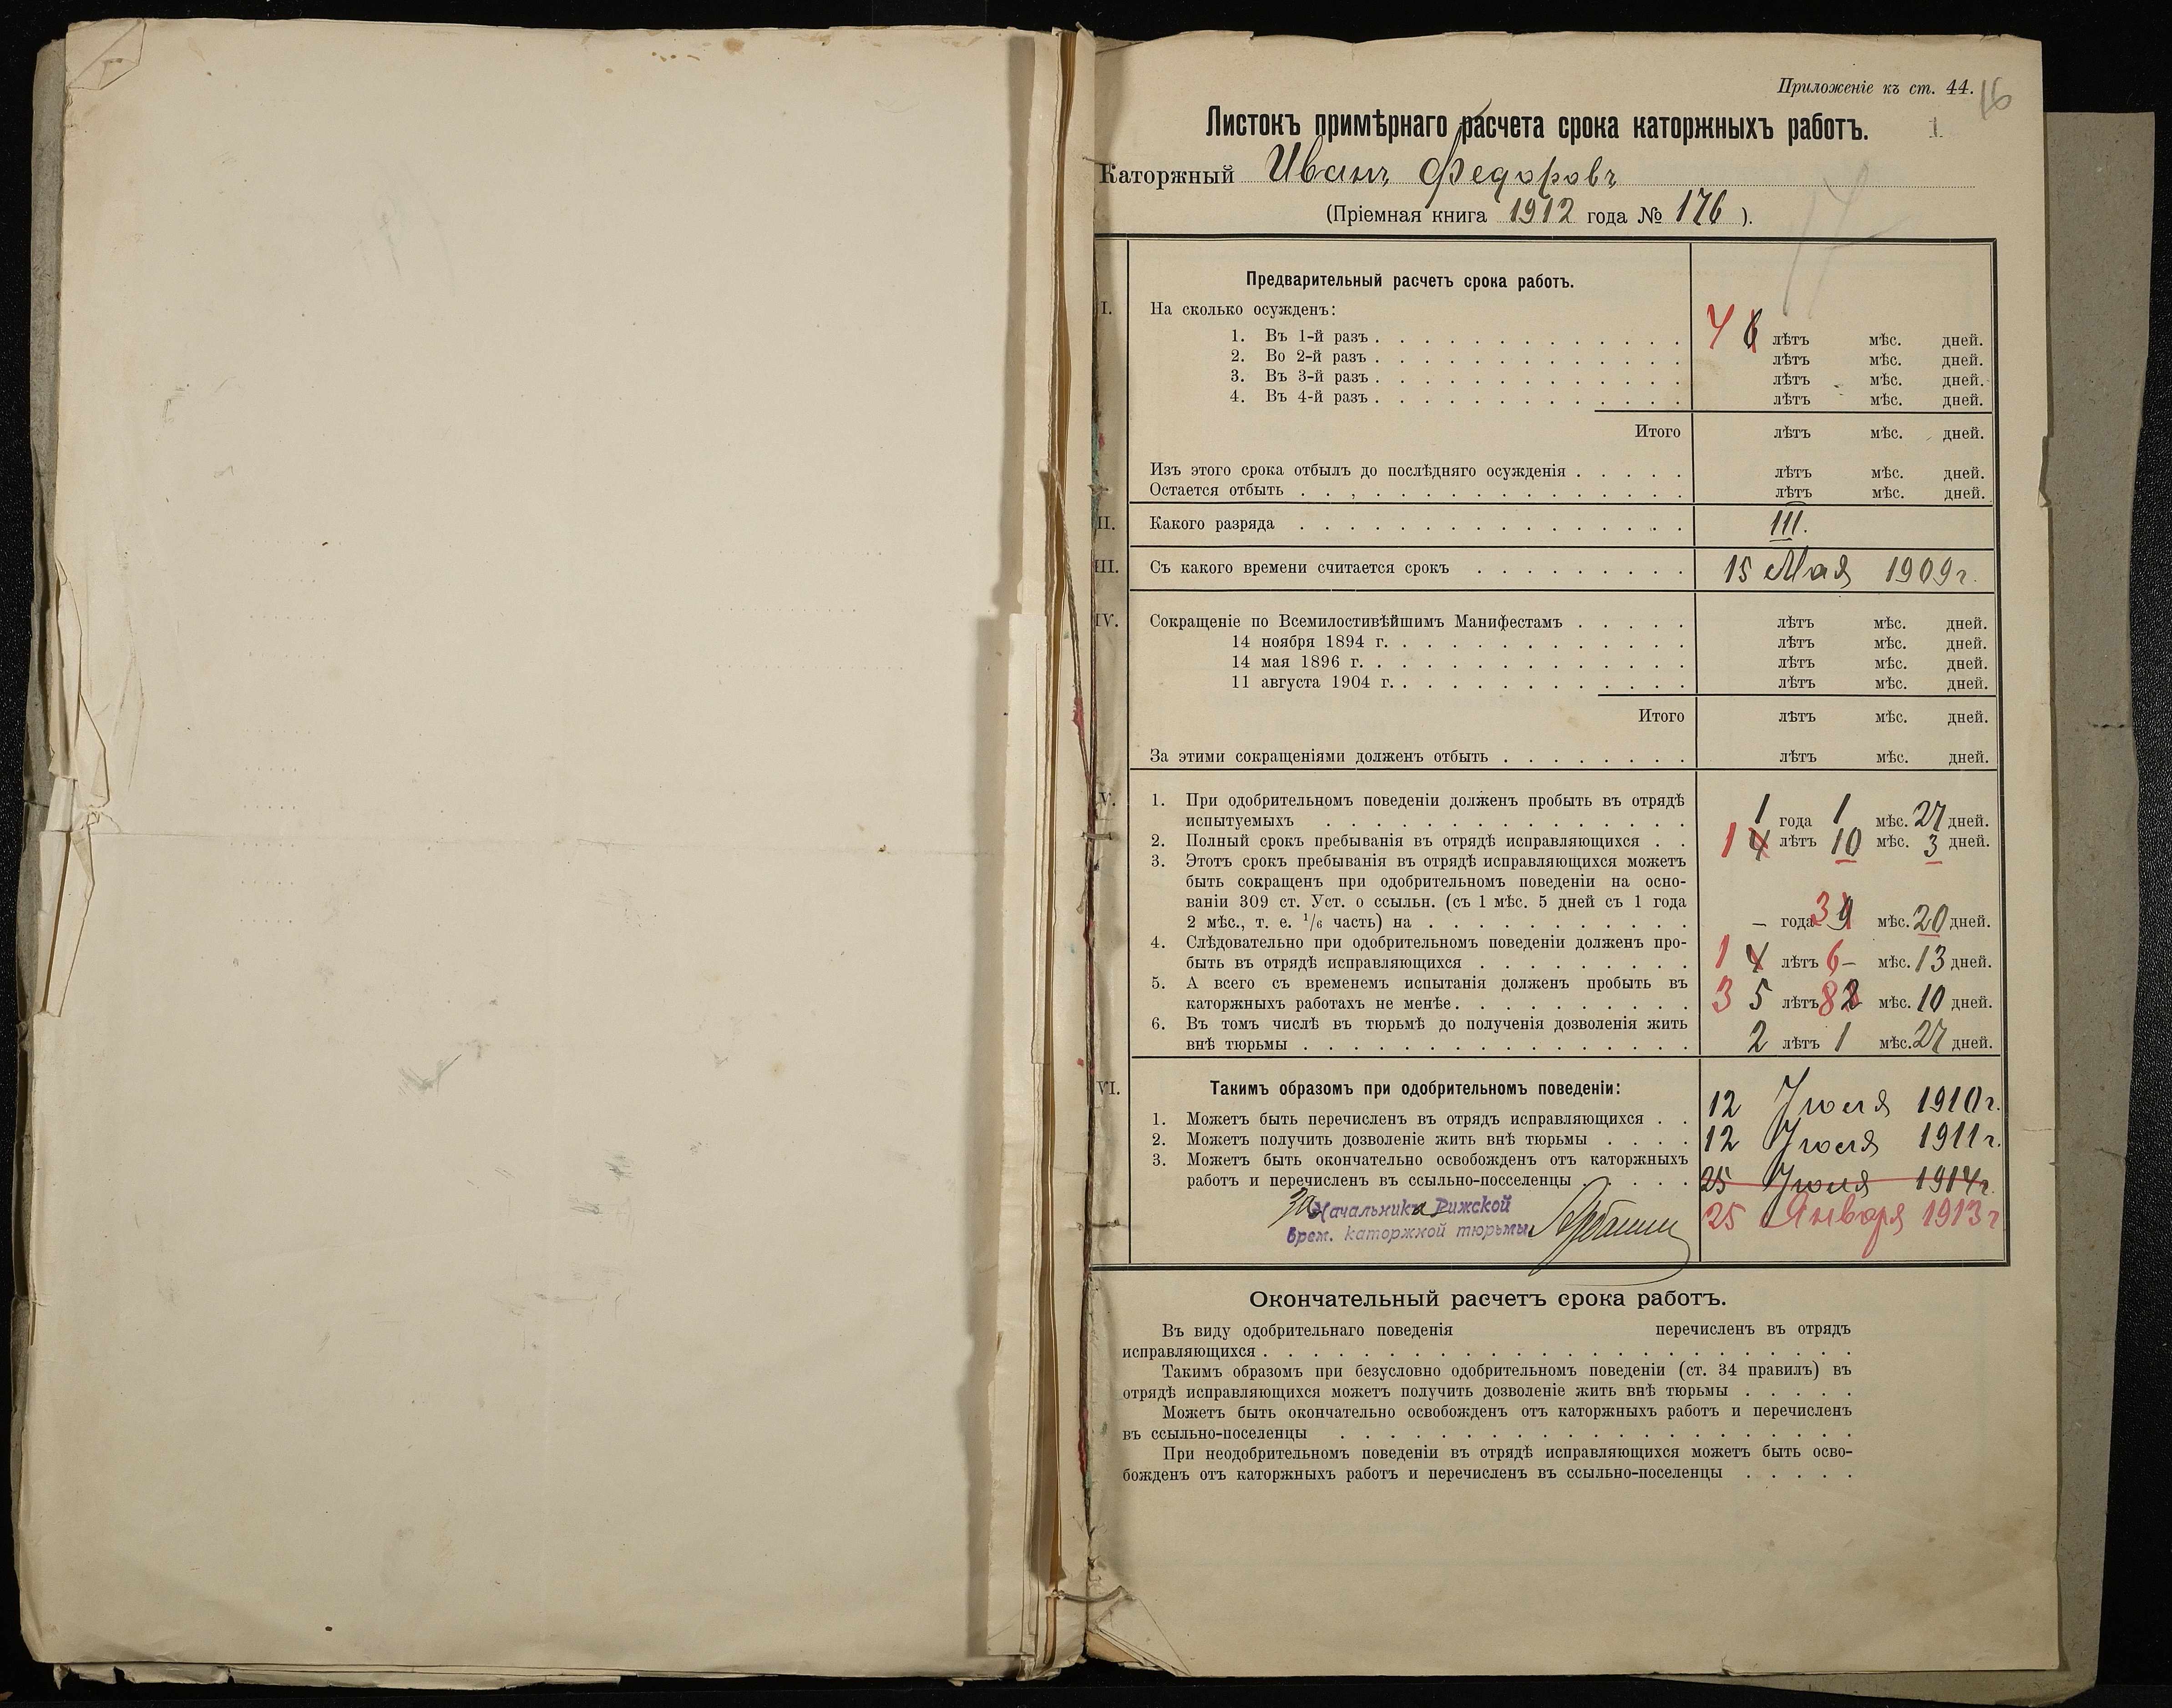 Приложеніе къ ст. 44.
16
Листокъ примѣрнаго расчета срока каторжныхъ работъ.
1
Каторжный Иванъ Федоровъ
17
(Пріемная книга 1912 года № 176 ).
Предварительный расчетъ срока работъ.
I. На сколько осужденъ:
1. Въ 1-й разъ . . . . . . . . . . . . . 4 6 лѣтъ мѣс. дней.
2. Во 2-й разъ . . . . . . . . . . . . . лѣтъ мѣс. дней.
3. Въ 3-й разъ . . . . . . . . . . . . . лѣтъ мѣс. дней.
4. Въ 4-й разъ . . . . . . . . . . . . . лѣтъ мѣс. дней.
Итого лѣтъ мѣс. дней.
Изъ этого срока отбылъ до послѣдняго осужденія . . . . . лѣтъ мѣс. дней.
Остается отбыть . . , . . . . . . . . . . . . . лѣтъ мѣс. дней.
II. Какого разряда . . . . . . . . . . . . . . . . III.
III. Съ какого времени считается срокъ . . . . . . . . . 15 Мая 1909 г.
IV. Сокращеніе по Всемилостивѣйшимъ Манифестамъ . . . . . лѣтъ мѣс. дней.
14 ноября 1894 г. . . . . . . . . . . . . лѣтъ мѣс. дней.
14 мая 1896 г. . . . . . . . . . . . . . лѣтъ мѣс. дней.
11 августа 1904 г. . . . . . . . . . . . . лѣтъ мѣс. дней.
Итого лѣтъ мѣс. дней.
За этими сокращеніями долженъ отбыть . . . . . . . . лѣтъ мѣс. дней.
V. 1. При одобрительномъ поведеніи долженъ пробыть въ отрядѣ
испытуемыхъ . . . . . . . . . . . . . . . 1 года 1 мѣс. 27 дней.
2. Полный срокъ пребыванія въ отрядѣ исправляющихся . . 1 4 лѣтъ 10 мѣс. 3 дней.
3. Этотъ срокъ пребыванія въ отрядѣ исправляющихся можетъ
быть сокращенъ при одобрительномъ поведеніи на осно-
ваніи 309 ст. Уст. о ссыльн. (съ 1 мѣс. 5 дней съ 1 года
2 мѣс., т. е. 1/6 часть) на . . . . . . . . . . . – года 3 9 мѣс. 20 дней.
4. Слѣдовательно при одобрительномъ поведеніи долженъ про-
быть въ отрядѣ исправляющихся . . . . . . . . . 1 4 лѣтъ 6 – мѣс. 13 дней.
5. А всего съ временемъ испытанія долженъ пробыть въ
каторжныхъ работахъ не менѣе . . . . . . . . . . 3 5 лѣтъ 8 2 мѣс. 10 дней.
6. Въ томъ числѣ въ тюрьмѣ до полученія дозволенія жить
внѣ тюрьмы . . . . . . . . . . . . . . . . 2 лѣтъ 1 мѣс. 27 дней.
VI. Такимъ образомъ при одобрительномъ поведеніи:
1. Можетъ быть перечисленъ въ отрядъ исправляющихся . . 12 Іюля 1910 г.
2. Можетъ получить дозволеніе жить внѣ тюрьмы . . . . 12 Іюля 1911 г.
3. Можетъ быть окончательно освобожденъ отъ каторжныхъ
работъ и перечисленъ въ ссыльно-посселенцы . . . . . 25 Іюля 1914 г.
За Начальника Рижской
Врем. каторжной тюрьмы
25 Января 1913 г
Окончательный расчетъ срока работъ.
Въ виду одобрительнаго поведенія перечисленъ въ отрядъ
исправляющихся . . . . . . . . . . . . . . . . . . . . . .
Такимъ образомъ при безусловно одобрительномъ поведеніи (ст. 34 правилъ) въ
отрядѣ исправляющихся можетъ получить дозволеніе жить внѣ тюрьмы . . . . .
Можетъ быть окончательно освобожденъ отъ каторжныхъ работъ и перечисленъ
въ ссыльно-поселенцы . . . . . . . . . . . . . . . . . . . .
При неодобрительномъ поведеніи въ отрядѣ исправляющихся можетъ быть осво-
божденъ отъ каторжныхъ работъ и перечисленъ въ ссыльно-поселенцы . . . . .